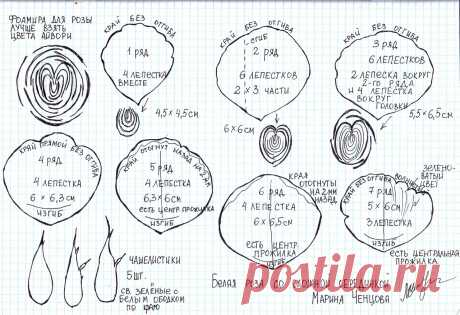 Фоамира для розы
лучше взять
цвета айвори
край без отгиба
1 ряд
4 лепестка
вместе
4,5 х 4,5см
край без отгиба
сгиб
2 ряд
6 лепестков
2 х 3 части
6х6см
край без отгиба
3 ряд
6 лепестков
2 лепеска вокруг
2-го ряда
и 4 лепестка
вокруг
головки
5,5 х6,5см
край прямой без отгиба
4 ряд
4 лепестка
6 х 6,3см
изгиб
край отогнут назад на 2 мм
5 ряд
4 лепестка
6,3х 6см
есть центр. прожилка
изгиб
края
отогнуты
на 2 мм
назад
6 ряд
4 лепестка
6 х 6,5см
есть центр.
прожилка
изгиб
край без отгиба
зелено-
ватый
цвет
7 ряд
5 х 6см
3 лепестка
изгиб
есть центральная
прожилка
чашелистики
5шт.
св. зелёные с
белым ободком
по краю
Белая роза со сложной серединкой
Марина Ченцова
postila.ru